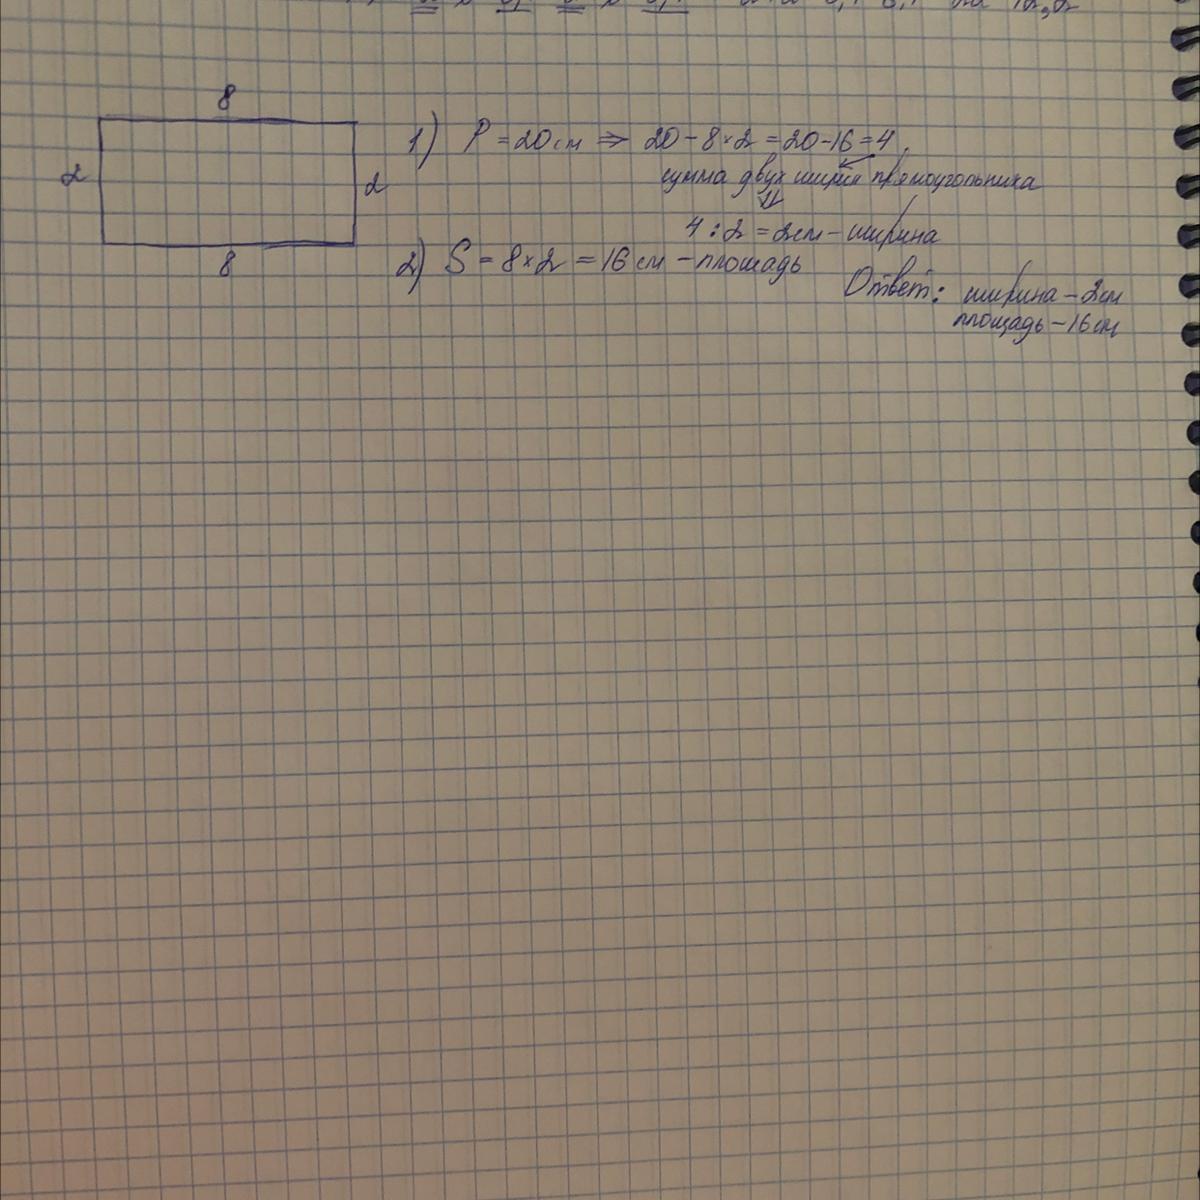 8
2
2
8
1) P = 20 см ⇒ 20 - 8 × 2 = 20 - 16 = 4
сумма двух ширин прямоугольника
4 : 2 = 2 см - ширина
2) S = 8 × 2 = 16 см - площадь
Ответ: ширина - 2 см
площадь - 16 см